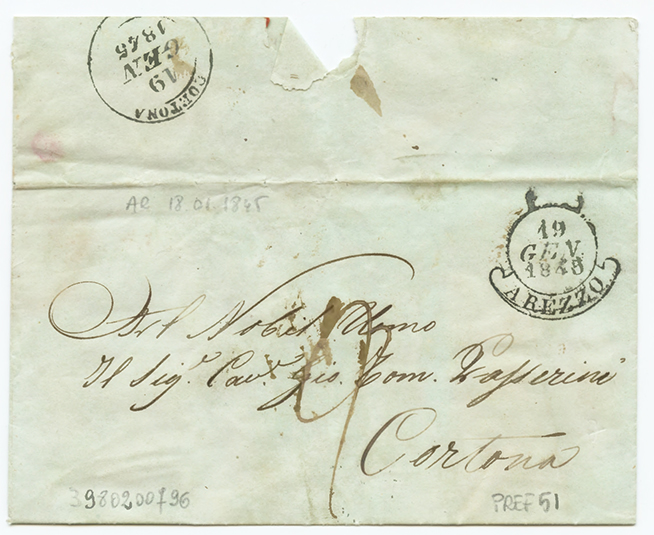 CORTONA
19
GEN
1845
AR 18.01.1845
19
GEN.
1845
AREZZO
Al Nobil Uomo
Il Sigr. Cavr. Gio. Tom. Passerini
Cortona
3980200796
PREF 51